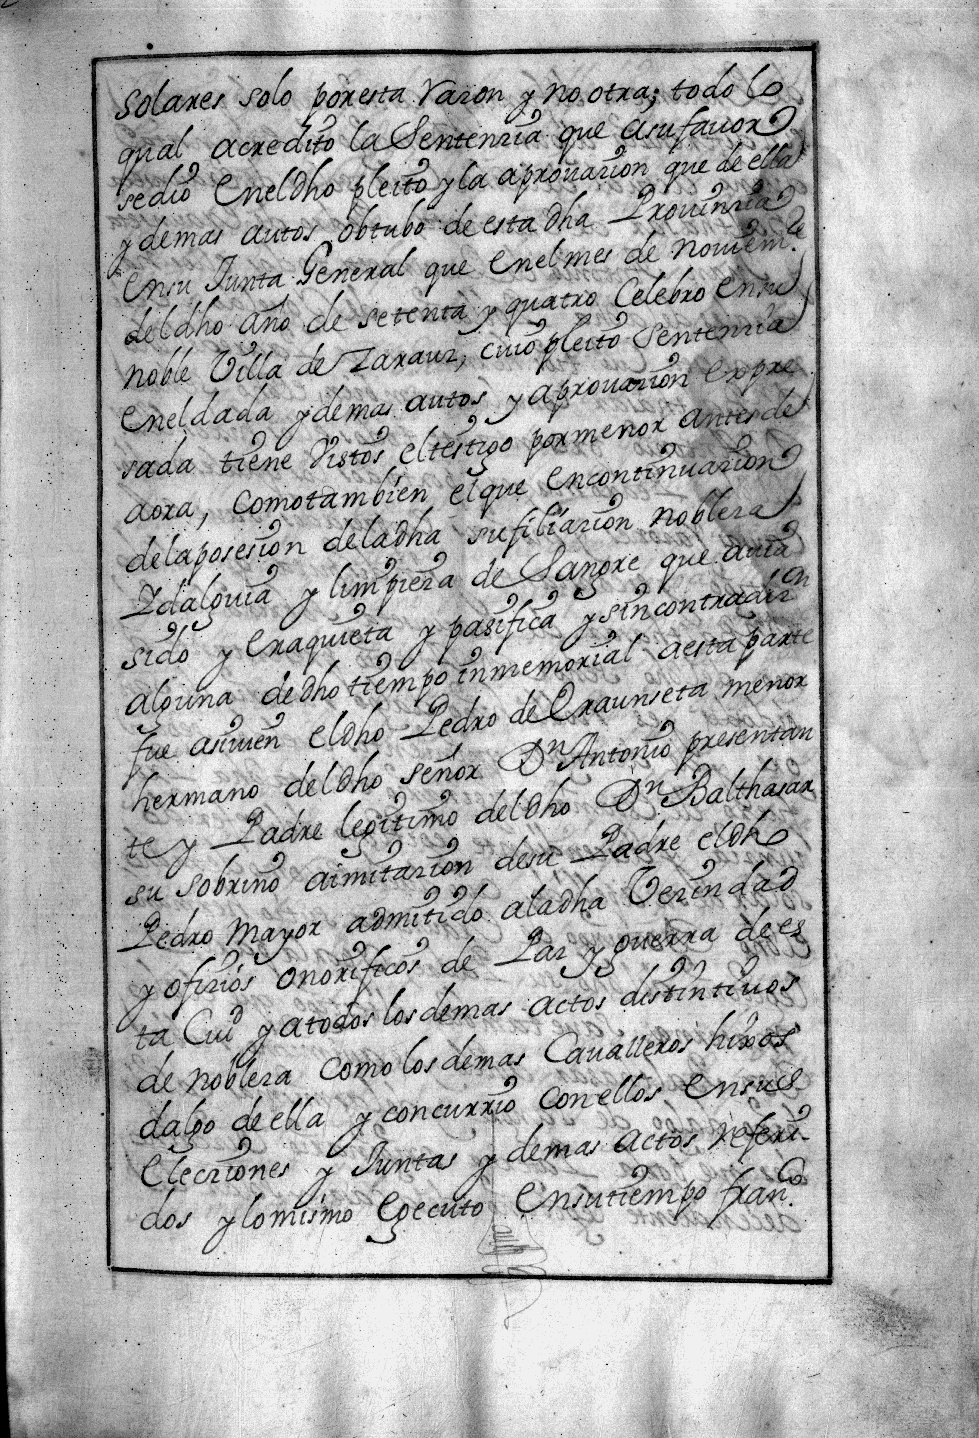 solares solo por esta raron y no otra; todo lo
qual acredito la Sentenria que asufauor
sedio eneldho pleito y la aprouarion que de ella
y demas autos obtubo de esta dha Prouinria
ensu Junta General que enelmes de Nouiemᵉ
deldho año de setenta y quatro Celebro ensu
noble Villa de Zaraur, cuio pleito sentenria
eneldada y demas autos y aprouarion expre
sada tiene Vistos eltestigo pormenor antesde
aora, comotambien elque encontinuarion
delaposesion deladha sufiliarion noblera
Ydalguia y limpiera de Sangre que auia
sido y era quieta y pasifica y sincontradirⁿ
alguna dedho tiempo inmemorial aesta parte
fue asiuien eldho Pedro de Oraunseta menor
hermano deldho señor Dⁿ Antonio presentan
te y Padre legitimo deldho Dⁿ Balthasar
su sobrino aimitarion desu Padre eldho
Pedro mayor admitido aladha Verindad
y ofirios onorificos de Par y guerra de es
ta Ciuᵈ y atodos losdemas actos distintiuos
de noblera como losdemas Caualleros hixos
dalgo de ella y concurrio conellos ensus
elecriones y Juntas y demas actos referi-
dos y lomismo egecuto ensutiempo franᶜᵒ